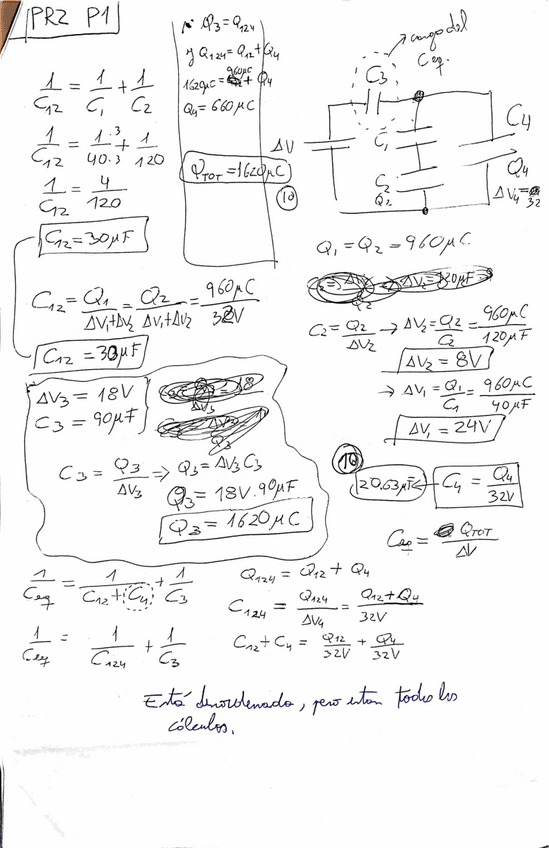 PR2 P1
1/C12 = 1/C1 + 1/C2
1/C12 = 1·3/40·3 + 1/120
1/C12 = 4/120
C12 = 30μF
C12 = Q1/ΔV1+ΔV2 = Q2/ΔV1+ΔV2 = 960μC/32V
C12 = 30μF
ΔV3 = 18V
C3 = 90μF
C3 = Q3/ΔV3 ⇒ Q3 = ΔV3 C3
Q3 = 18V·90μF
Q3 = 1620μC
1/Ceq = 1/C12+C4 + 1/C3
1/Ceq = 1/C124 + 1/C3
Q3 = Q124
y Q124 = Q12 + Q4
1620μC = 960μC + Q4
Q4 = 660μC
QTOT = 1620μC
10
cargo del
Ceq.
C3
ΔV
C1
C2
Q2
C4
Q4
ΔV4 = 32
Q1 = Q2 = 960μC
C2 = Q2/ΔV2 → ΔV2 = Q2/C2 = 960μC/120μF
ΔV2 = 8V
→ ΔV1 = Q1/C1 = 960μC/40μF
ΔV1 = 24V
10
20.63μF ← C4 = Q4/32V
Ceq = QTOT/ΔV
Q124 = Q12 + Q4
C124 = Q124/ΔV4 = Q12+Q4/32V
C12 + C4 = Q12/32V + Q4/32V
Está desordenada, pero estan todos los
cálculos.